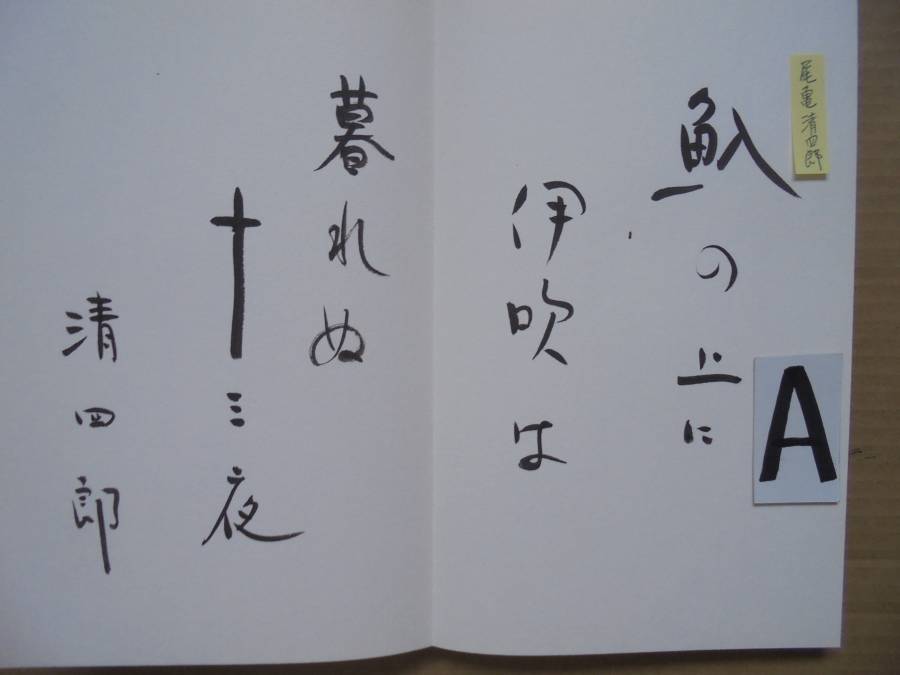 尾亀清四郎
魞の上に
伊吹は
暮れぬ
十三夜
清四郎
A